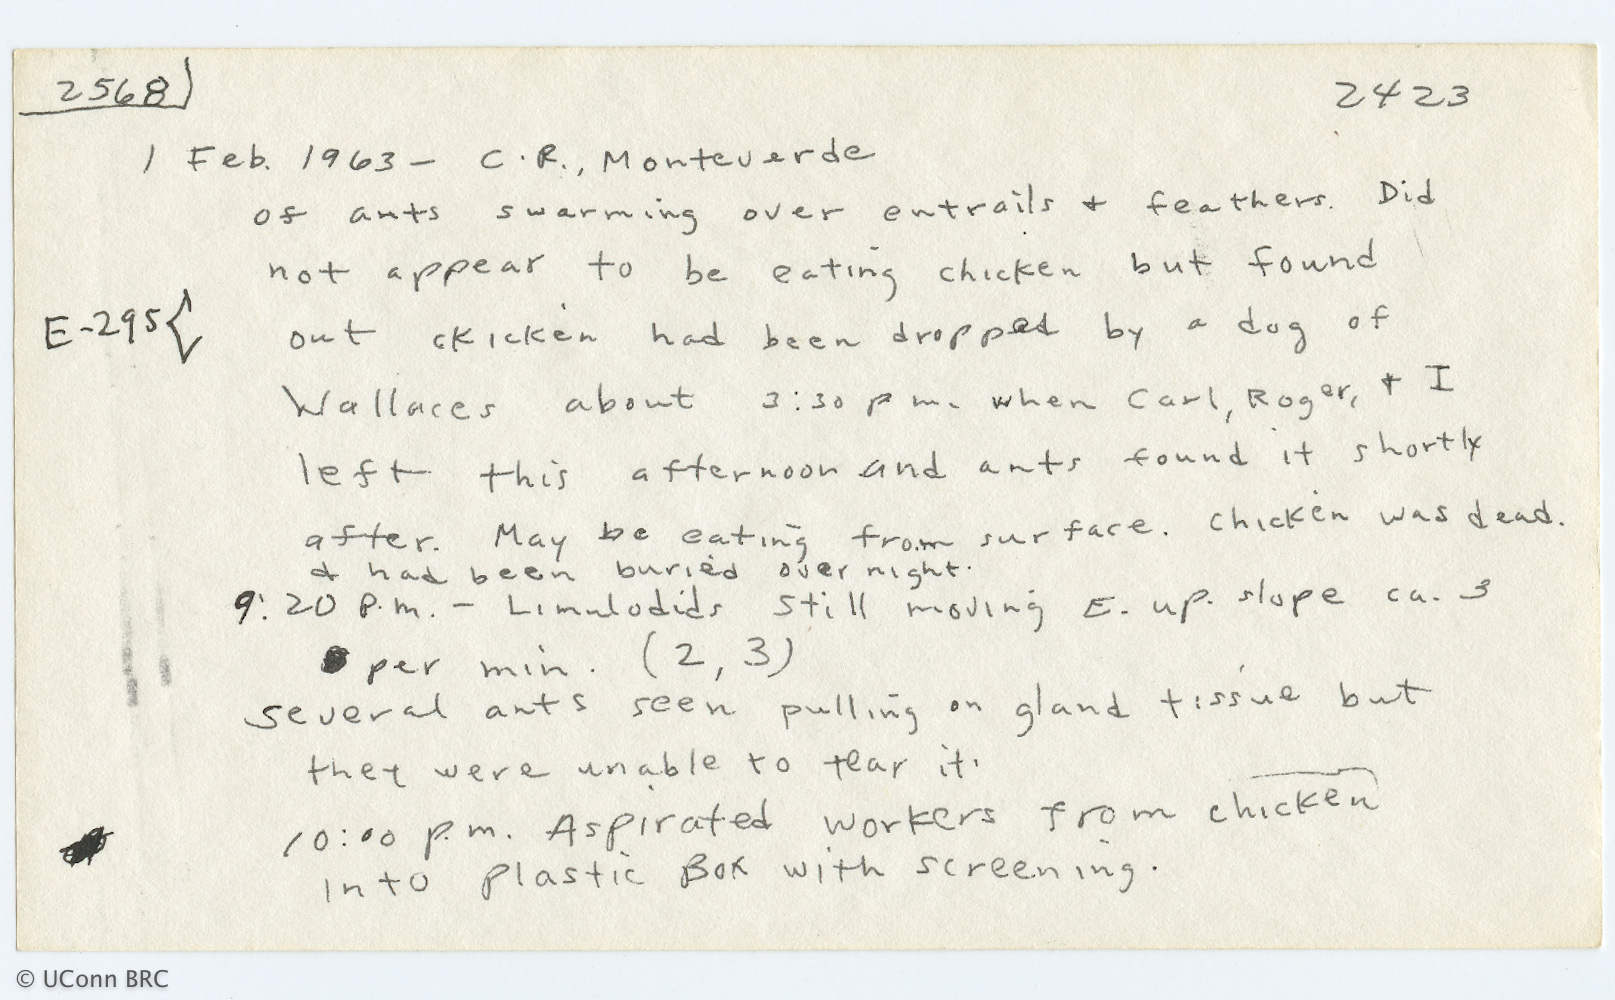 2568 2423
1 Feb. 1963 - C.R., Monteverde
of ants swarming over entrails + feathers. Did
not appear to be eating chicken but found
E-295 { out ckicken had been dropped by a dog of
Wallaces about 3:30 p m. when Carl, Roger, + I
left this afternoon and ants found it shortly
after. May be eating from surface. Chicken was dead.
+ had been buried over night.
9:20 P.m. - Limulodids still moving E. up. slope ca. 3
per min. (2, 3)
several ants seen pulling on gland tissue but
they were unable to tear it.
10:00 p.m. Aspirated workers from chicken
into plastic Box with screening.
© UConn BRC